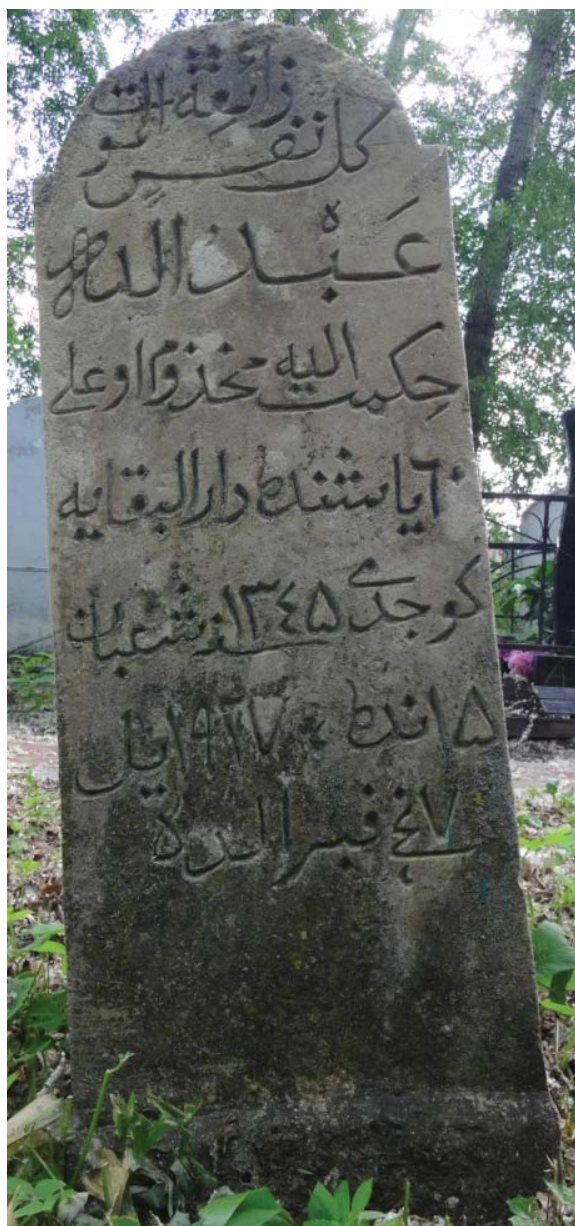 كل نفس ذائقة الموت
عَبْدُ اللّٰه
حِكمت اليه مخذوم اوغلي
٦٠ ياشنده دار البقايه
كوجدى ١٣٤٥ سنه شعبان
١٥ نده، ١٩٢٧ يل
٧نچى فبرالده